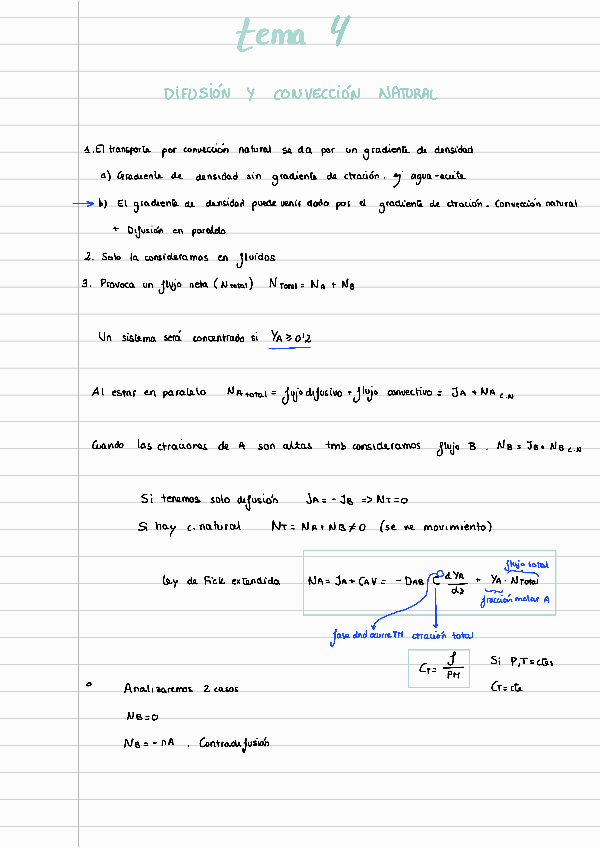 tema 4
DIFUSIÓN Y CONVECCIÓN NATURAL
1. El transporte por convección natural se da por un gradiente de densidad
a) Gradiente de densidad sin gradiente de ctración. ej agua-aceite
→ b) El gradiente de densidad puede venir dado por el gradiente de ctración. Convección natural
+ Difusión en paralelo
2. Solo la consideramos en fluidos
3. Provoca un flujo neto (N total) N Total = NA + NB
Un sistema será concentrado si YA ≥ 0'2
Al estar en paralelo NA total = flujo difusivo + flujo convectivo = JA + NA C.N
Cuando las ctraciones de A son altas tmb consideramos flujo B. NB = JB + NB C.N
Si tenemos solo difusión JA = - JB => NT = 0
Si hay c. natural NT = NA + NB ≠ 0 (se ve movimiento)
flujo total
Ley de Fick extendida NA = JA + CA V = - DAB C dYA/dz + YA · NTotal
fracción molar A
fase dnd ocurre TM ctración total
CT = ρ/PM Si P, T = ctes
CT = cte
° Analizaremos 2 casos
NB = 0
NB = - nA . Contradifusión